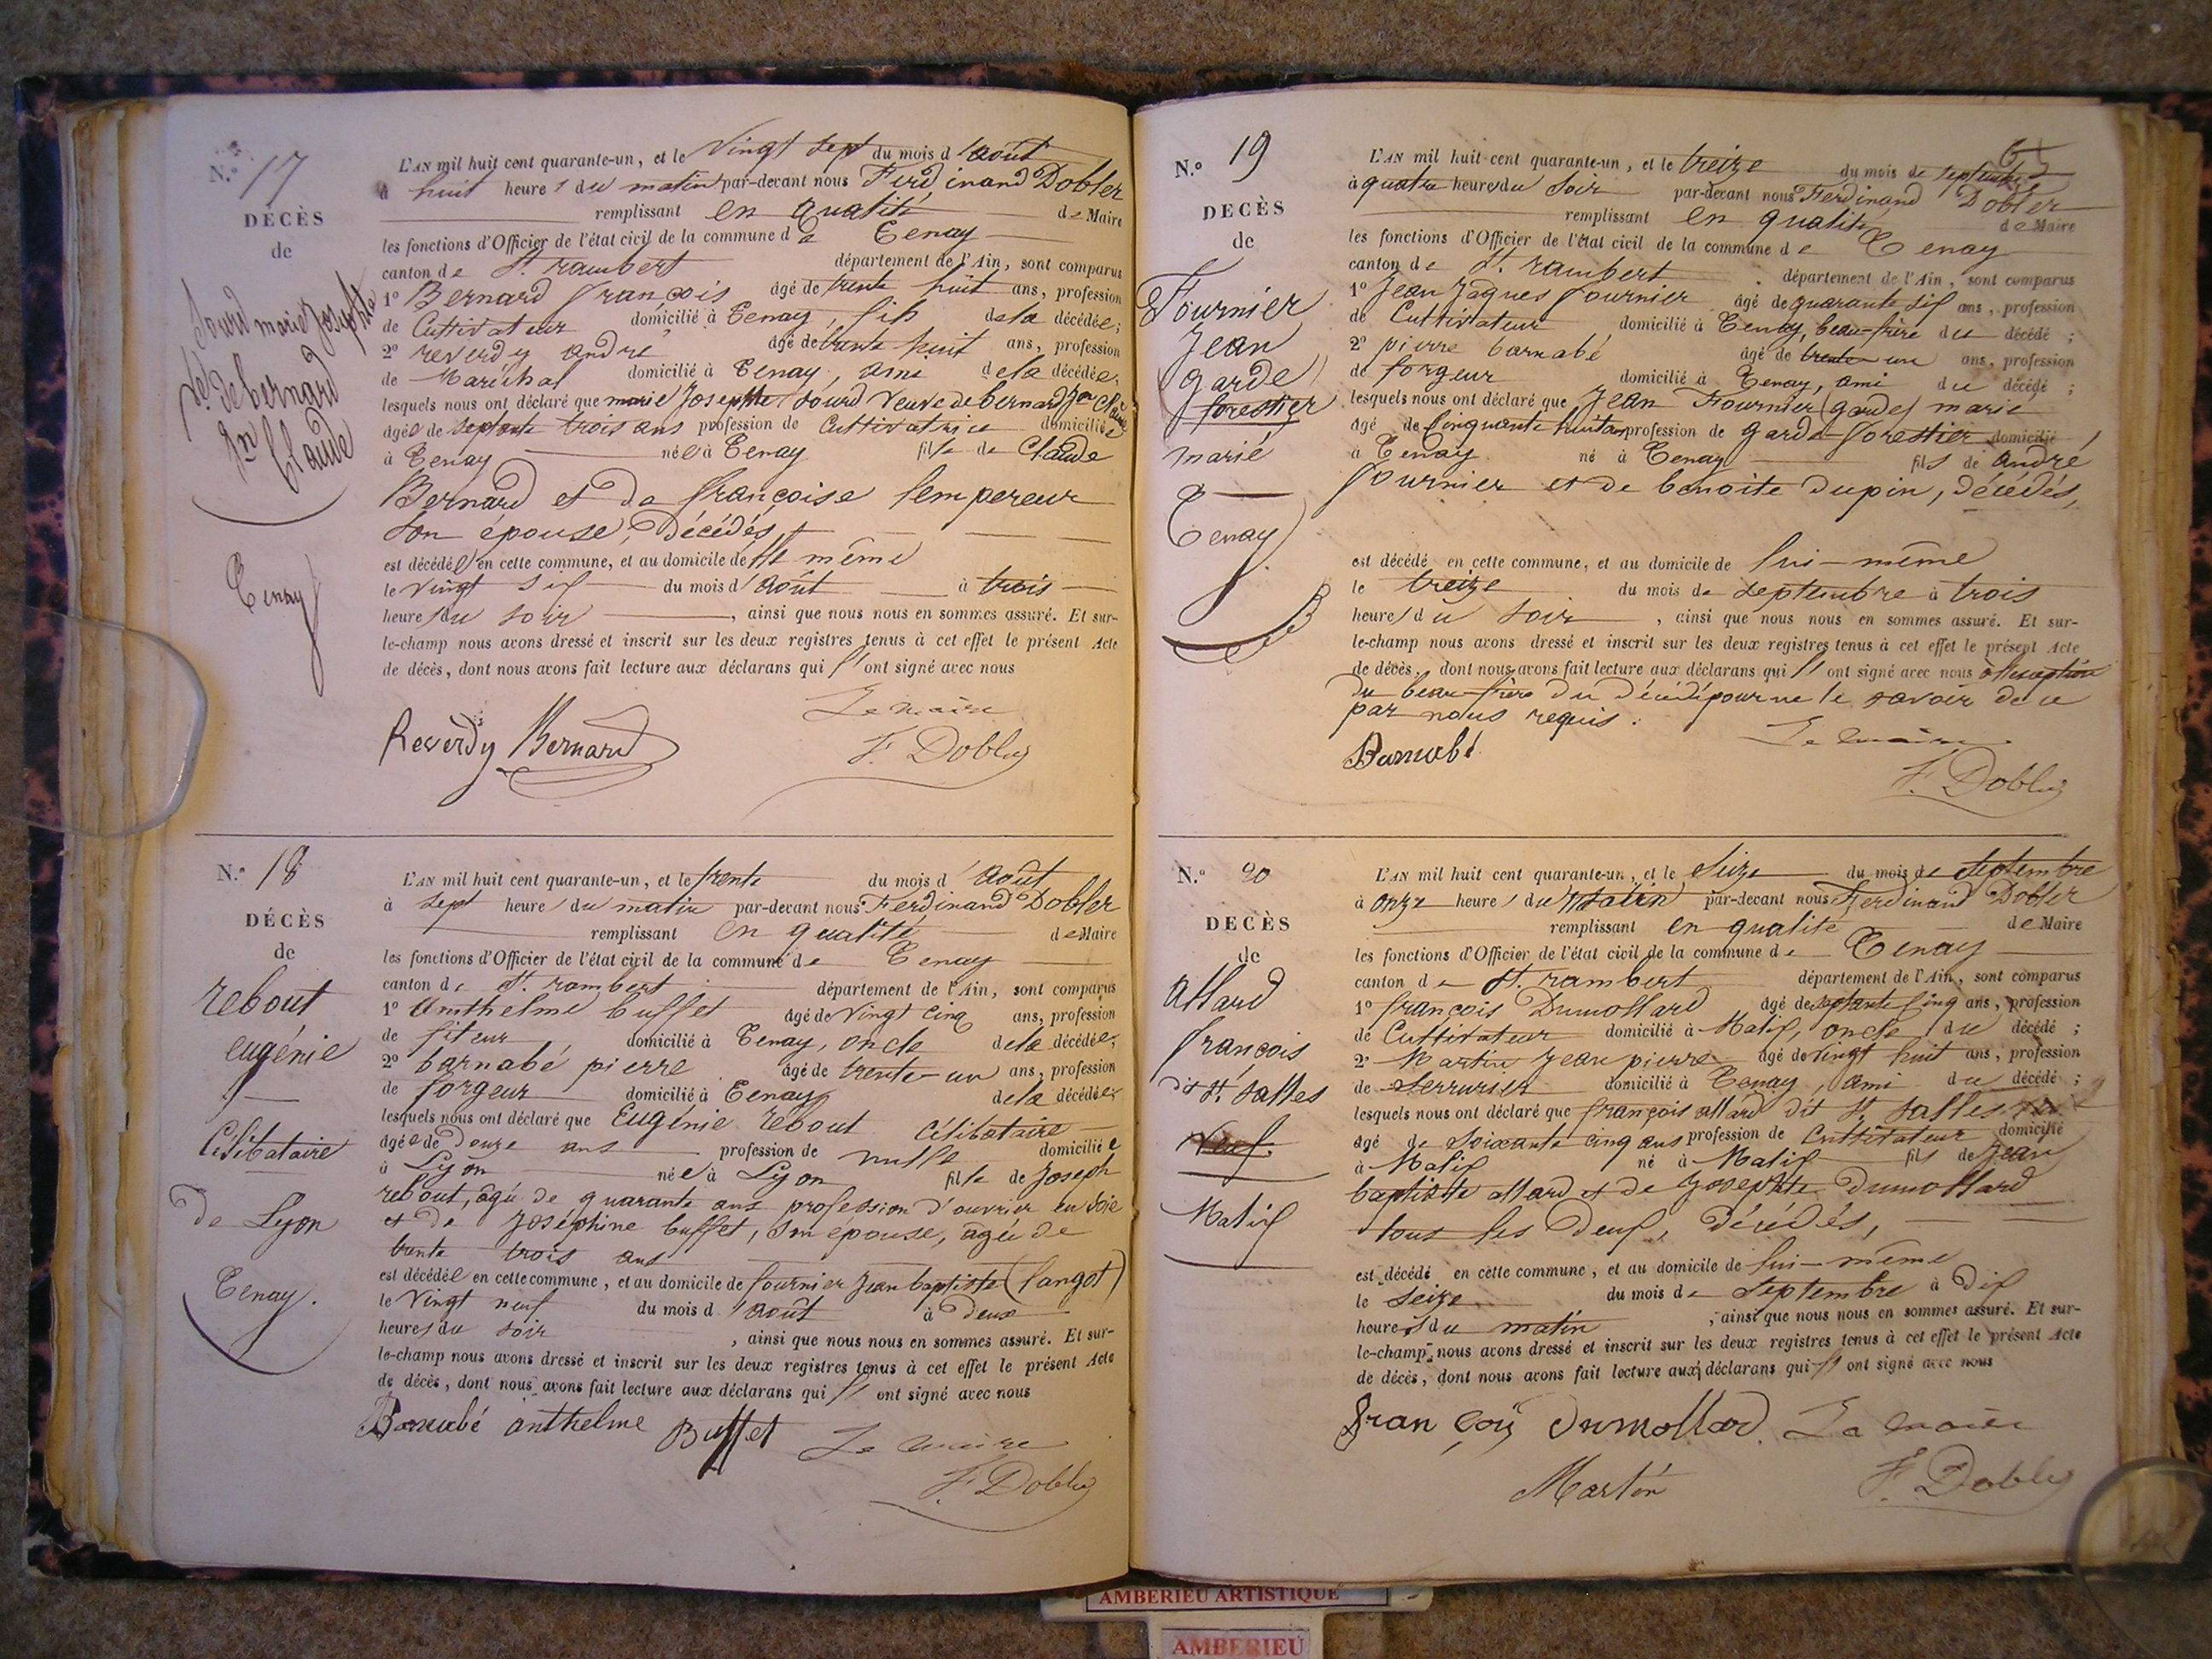 N.° 17
DÉCÈS
de
Sourd marie Josephte
Ve. de bernard
Jn Claude
Tenay
L'AN mil huit cent quarante-un, et le Vingt sept du mois d'août
à huit heures du matin par-devant nous Ferdinand Dobler
remplissant en qualité de Maire
les fonctions d'Officier de l'état civil de la commune de Tenay
canton de St. rambert département de l'Ain, sont comparus
1° Bernard françois âgé de trente huit ans, profession
de Cultivateur domicilié à Tenay, fils de la décédée;
2° reverdy andré âgé de trente huit ans, profession
de Maréchal domicilié à Tenay, ami de la décédée;
lesquels nous ont déclaré que marie Josephte Sourd Veuve de bernard Jn Claude
âgée de septante trois ans profession de Cultivatrice domiciliée
à Tenay née à Tenay fille de Claude
Bernard et de françoise lempereur
son épouse, Décédés,
est décédée en cette commune, et au domicile de elle même
le vingt six du mois d'août à trois
heures du soir, ainsi que nous nous en sommes assuré. Et sur-
le-champ nous avons dressé et inscrit sur les deux registres tenus à cet effet le présent Acte
de décès, dont nous avons fait lecture aux déclarans qui ont signé avec nous
Reverdy Bernard Le maire
F. Dobler
N.° 18
DÉCÈS
de
rebout
eugénie
Célibataire
de Lyon
Tenay.
L'AN mil huit cent quarante-un, et le trente du mois d'août
à sept heures du matin par-devant nous Ferdinand Dobler
remplissant en qualité de Maire
les fonctions d'Officier de l'état civil de la commune de Tenay
canton de St. rambert département de l'Ain, sont comparus
1° Anthelme buffet âgé de Vingt cinq ans, profession
de fileur domicilié à Tenay, oncle de la décédée;
2° barnabé pierre âgé de trente-un ans, profession
de forgeur domicilié à Tenay de la décédée;
lesquels nous ont déclaré que Eugénie rebout Célibataire
âgée de douze ans profession de nulle domiciliée
à Lyon née à Lyon fille de Joseph
rebout, âgé de quarante ans profession d'ouvrier en soie
et de Joséphine buffet, son épouse, âgée de
trente trois ans
est décédée en cette commune, et au domicile de fournier Jean baptiste (langot)
le Vingt neuf du mois d'août à deux
heures du soir, ainsi que nous nous en sommes assuré. Et sur-
le-champ nous avons dressé et inscrit sur les deux registres tenus à cet effet le présent Acte
de décès, dont nous avons fait lecture aux déclarans qui ont signé avec nous
Barnabé anthelme Buffet Le maire
F. Dobler
65
N.° 19
DECÈS
de
Fournier
Jean
(garde)
forestier
marié
Tenay
L'AN mil huit cent quarante-un, et le treize du mois de septembre
à quatre heures du soir par-devant nous Ferdinand Dobler
remplissant en qualité de Maire
les fonctions d'Officier de l'état civil de la commune de Tenay
canton de St. rambert département de l'Ain, sont comparus
1° Jean Jaques fournier âgé de quarante six ans, profession
de Cultivateur domicilié à Tenay, beau-frère du décédé;
2° pierre barnabé âgé de trente-un ans, profession
de forgeur domicilié à Tenay, ami du décédé;
lesquels nous ont déclaré que Jean Fournier (garde) marié
âgé de Cinquante huit ans profession de garde-forestier domicilié
à Tenay né à Tenay fils de andré
fournier et de benoite dupin, décédés,
est décédé en cette commune, et au domicile de lui-même
le treize du mois de septembre à trois
heures du soir, ainsi que nous nous en sommes assuré. Et sur-
le-champ nous avons dressé et inscrit sur les deux registres tenus à cet effet le présent Acte
de décès, dont nous avons fait lecture aux déclarans qui ont signé avec nous à l'exception
du beau-frère du décédé pour ne le savoir de ce
par nous requis.
Barnabé Le maire
F. Dobler
N.° 20
DECÈS
de
allard
françois
dit St. salles
Veuf.
Matix
L'AN mil huit cent quarante-un, et le Seize du mois de Septembre
à onze heures du Matin par-devant nous Ferdinand Dobler
remplissant en qualité de Maire
les fonctions d'Officier de l'état civil de la commune de Tenay
canton de St. rambert département de l'Ain, sont comparus
1° françois Dumollard âgé de septante cinq ans, profession
de Cultivateur domicilié à Malix, oncle du décédé;
2° Martin Jean pierre âgé de vingt huit ans, profession
de Serrurier domicilié à Tenay, ami du décédé;
lesquels nous ont déclaré que françois allard dit St. salles
âgé de soixante cinq ans profession de Cultivateur domicilié
à Malix né à Malix fils de Jean
baptiste allard et de Josephte Dumollard
tous les deux, décédés,
est décédé en cette commune, et au domicile de lui-même
le seize du mois de Septembre à dix
heures du matin, ainsi que nous nous en sommes assuré. Et sur-
le-champ nous avons dressé et inscrit sur les deux registres tenus à cet effet le présent Acte
de décès, dont nous avons fait lecture aux déclarans qui ont signé avec nous
françois Dumollard Le maire
Martin F. Dobler
AMBERIEU ARTISTIQUE
AMBERIEU